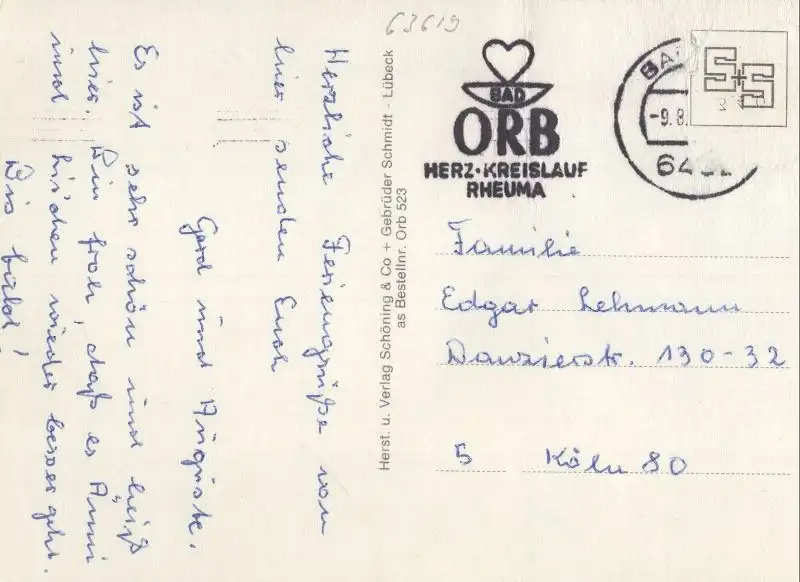 63619
Herzliche Feriengrüße von
hier senden Euch
Gerd und Auguste.
Es ist sehr schön und heiß
hier. Bin froh, daß es Änni
und bis'chen wieder besser geht.
Bis bald!
Herst. u. Verlag Schöning & Co + Gebrüder Schmidt - Lübeck
as Bestellnr. Orb 523
BAD
ORB
HERZ·KREISLAUF
RHEUMA
BA
-9.8.
64
S+S
Familie
Edgar Lehmann
Danzierstr. 130-32
5 Köln 80